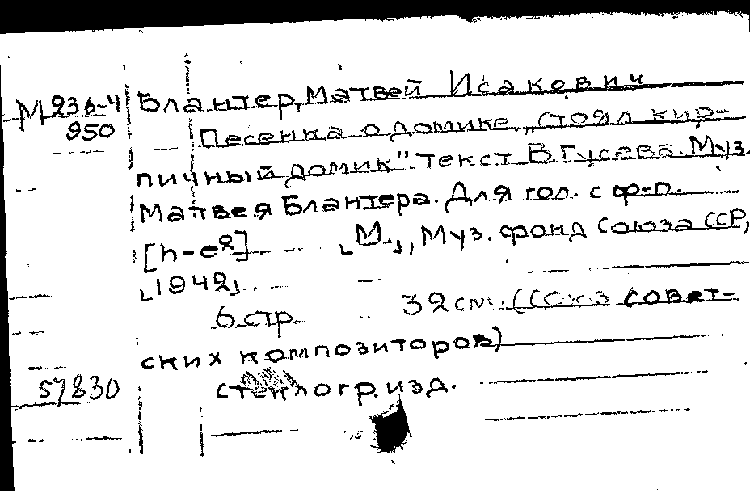 М 236-4
950
Блантер, Матвей Исакович
Песенка о домике „Стоял кир-
пичный домик". Текст В. Гусева. Муз.
Матвея Блантера. Для гол. с ф-п.
[h-e²] ⌞М.⌟, Муз. фонд Союза ССР,
⌞1942⌟
6 стр. 32 см. (Союз совет-
ских композиторов)
57830 стеклогр. изд.